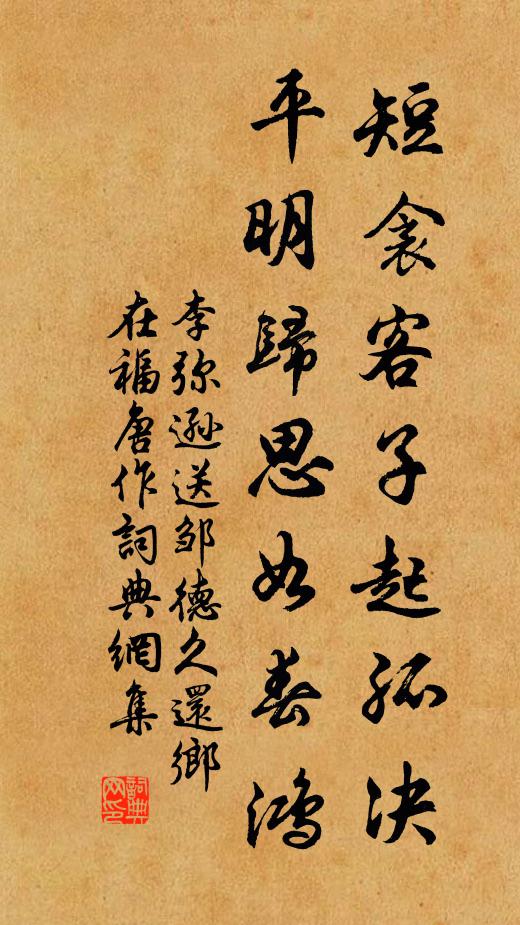 短衾客子起孤决
平明歸思如春鴻
李弥遜送邹德久還鄉
在福唐作詞典網集
詞典网印